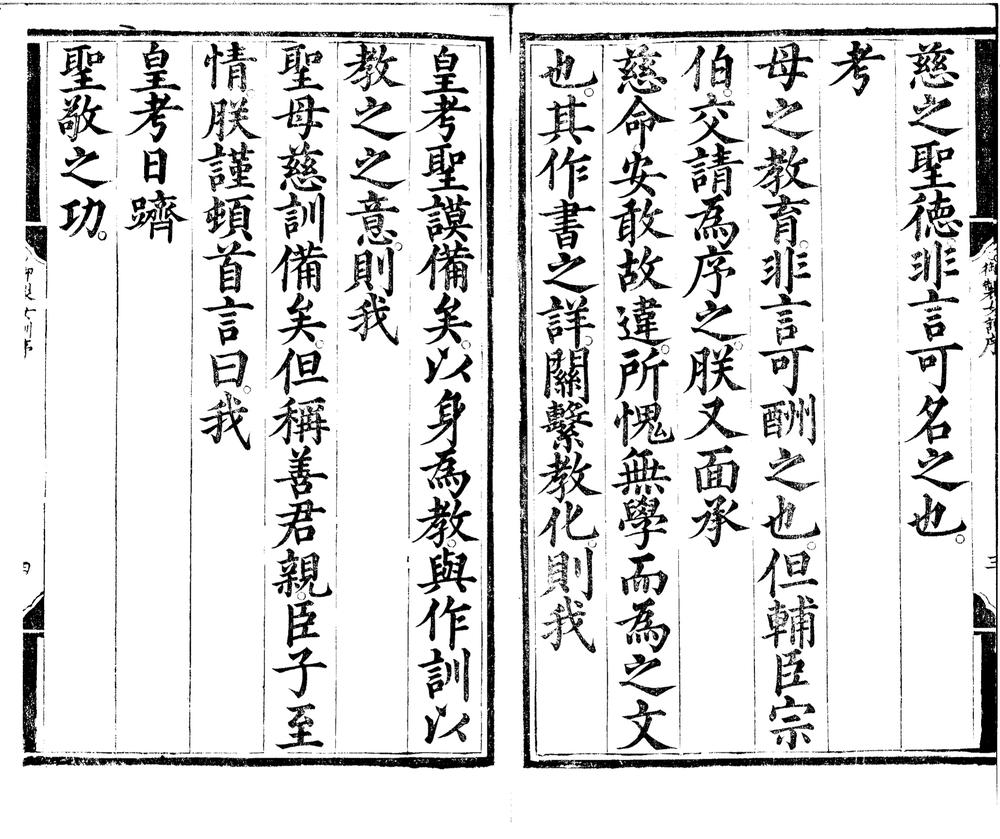 慈之聖德非言可名之也。
考
母之教育。非言可酬之也。但輔臣宗
伯。交請為序之。朕又面承
慈命安敢故違。所愧無學而為之文
也。其作書之詳。關繫教化。則我
皇考聖謨備矣。以身為教。與作訓以
教之之意。則我
聖母慈訓備矣。但稱善君親。臣子至
情朕謹頓首言曰。我
皇考日躋
聖敬之功。
御製女訓序
三
御製女訓序
四